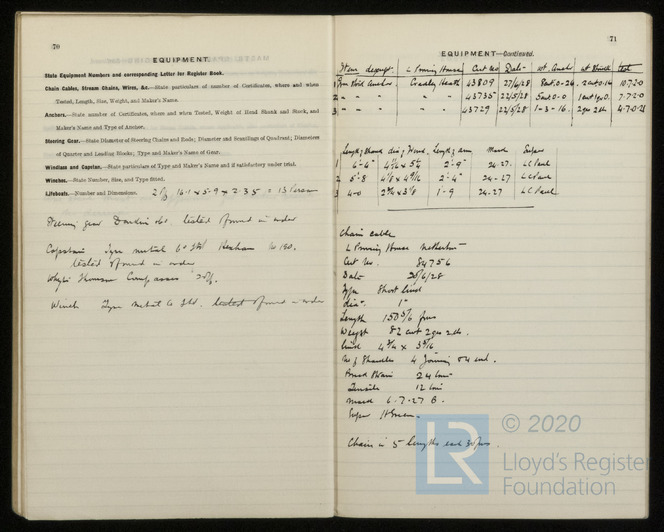 70
EQUIPMENT.
State Equipment Numbers and corresponding Letter for Register Book.
Chain Cables, Stream Chains, Wires, &c.—State particulars of number of Certificates, where and when
Tested, Length, Size, Weight, and Maker's Name.
Anchors.—State number of Certificates, where and when Tested, Weight of Head Shank and Stock, and
Maker's Name and Type of Anchor.
Steering Gear.—State Diameter of Steering Chains and Rods; Diameter and Scantlings of Quadrant; Diameters
of Quarter and Leading Blocks; Type and Maker's Name of Gear.
Windlass and Capstan.—State particulars of Type and Maker's Name and if satisfactory under trial.
Winches.—State Number, Size, and Type fitted.
Lifeboats.—Number and Dimensions. 2 16.1 x 5.9 x 2.35 = 13 Person
Steering gear tested & found in order
Capstan Tyne metal Co Ltd Hexham No 190.
tested & found in order
Compasses
Winch Tyne Metal Co Ltd. tested & found in order
71
EQUIPMENT—Continued.
Item descript. L Proving House Cert No Date wt. Anchor wt Shank test
1 Anchor. Cradley Heath 43809 27/6/28 10.7.2.0
2 - - " " 43735 22/5/28 5cwt.0.0 7.7.2.0
3 - - " " 43729 22/5/28 1-3-16. 4-7.0.21
Length Shank dia Length arm
1 2'-9" 24-27. LC Paul
2 5'-8 2'-4" 24-27 LC Paul
3 4-0 1-9 24-27 LC Paul
Chain cable
L Proving House Netherton
Cert No. 84756
Date 20/6/28
Type Short link
dia. 1"
Length 150 5/6 fms
Weight 82 cwt 2 qrs
Link
No of Shackles 4 joining & 4 end.
Proof Strain 24 tons
Tensile 12 tons
Mark 6-7-27 B.
Super
Chain in 5 lengths each 30 fms
© 2020
LR
Lloyd's Register
Foundation